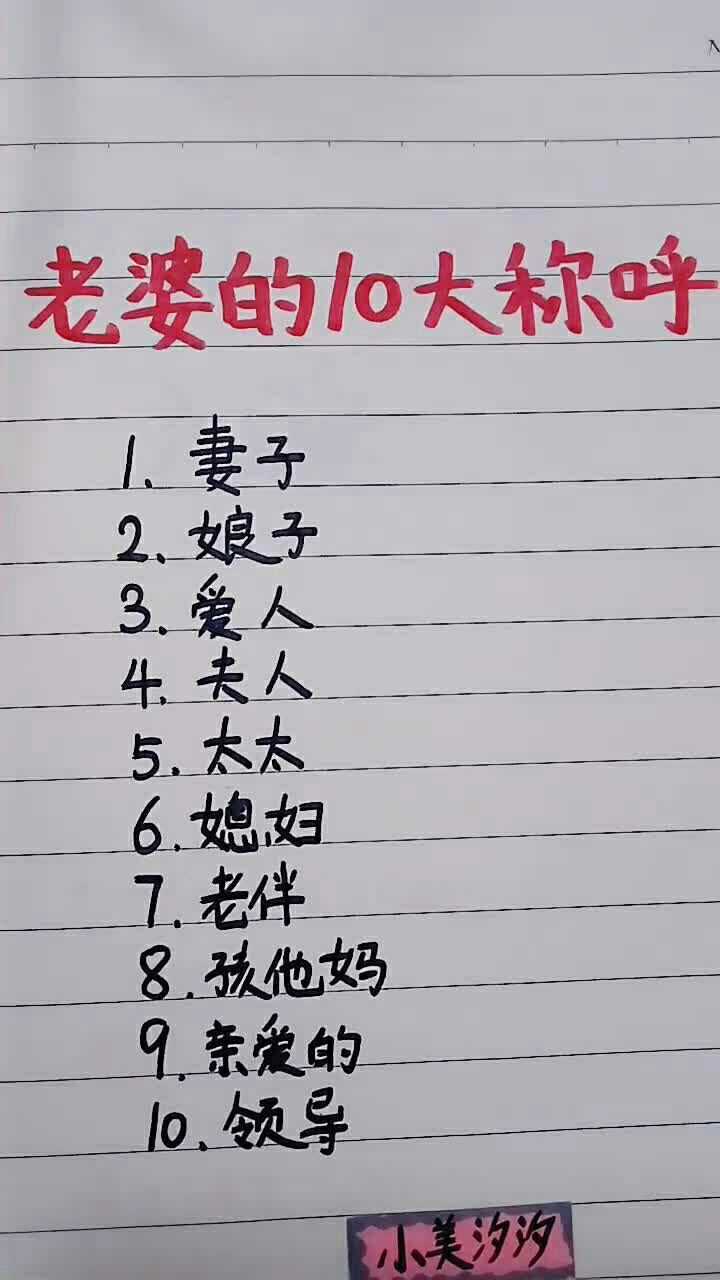 老婆的10大称呼
1. 妻子
2. 娘子
3. 爱人
4. 夫人
5. 太太
6. 媳妇
7. 老伴
8. 孩他妈
9. 亲爱的
10. 领导
小美汐汐